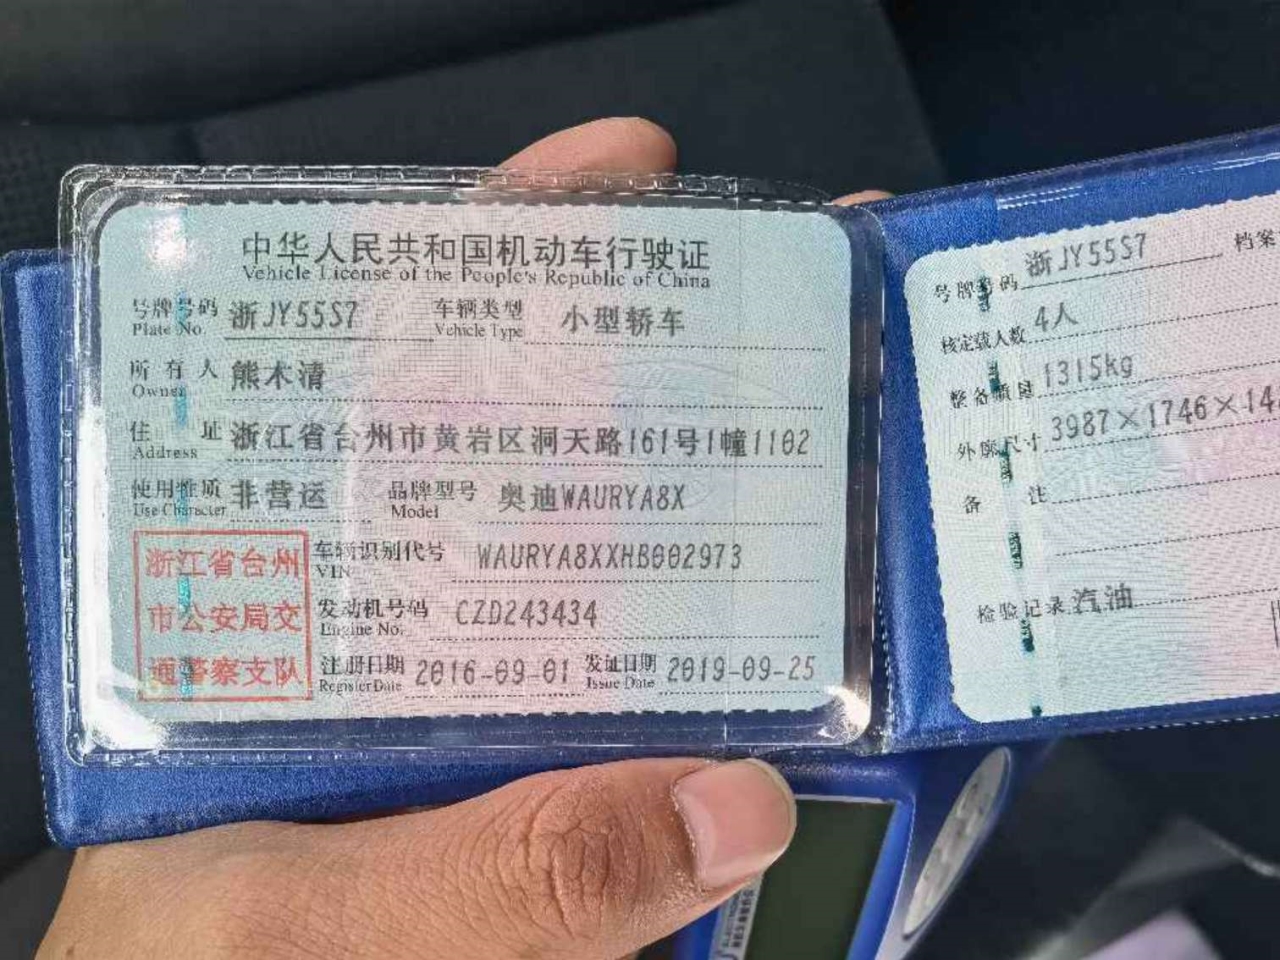 中华人民共和国机动车行驶证
Vehicle License of the People's Republic of China
号牌号码 浙JY55S7 车辆类型 小型轿车
Plate No. Vehicle Type
所有人 熊木清
Owner
住址 浙江省台州市黄岩区洞天路161号1幢1102
Address
使用性质 非营运 品牌型号 奥迪WAURYA8X
Use Character Model
浙江省台州
市公安局交
通警察支队
车辆识别代号 WAURYA8XXHB002973
VIN
发动机号码 CZD243434
Engine No.
注册日期 2016-09-01 发证日期 2019-09-25
Register Date Issue Date
号牌号码 浙JY55S7 档案
核定载人数 4人
整备质量 1315kg
外廓尺寸 3987×1746×14
备注
检验记录 汽油